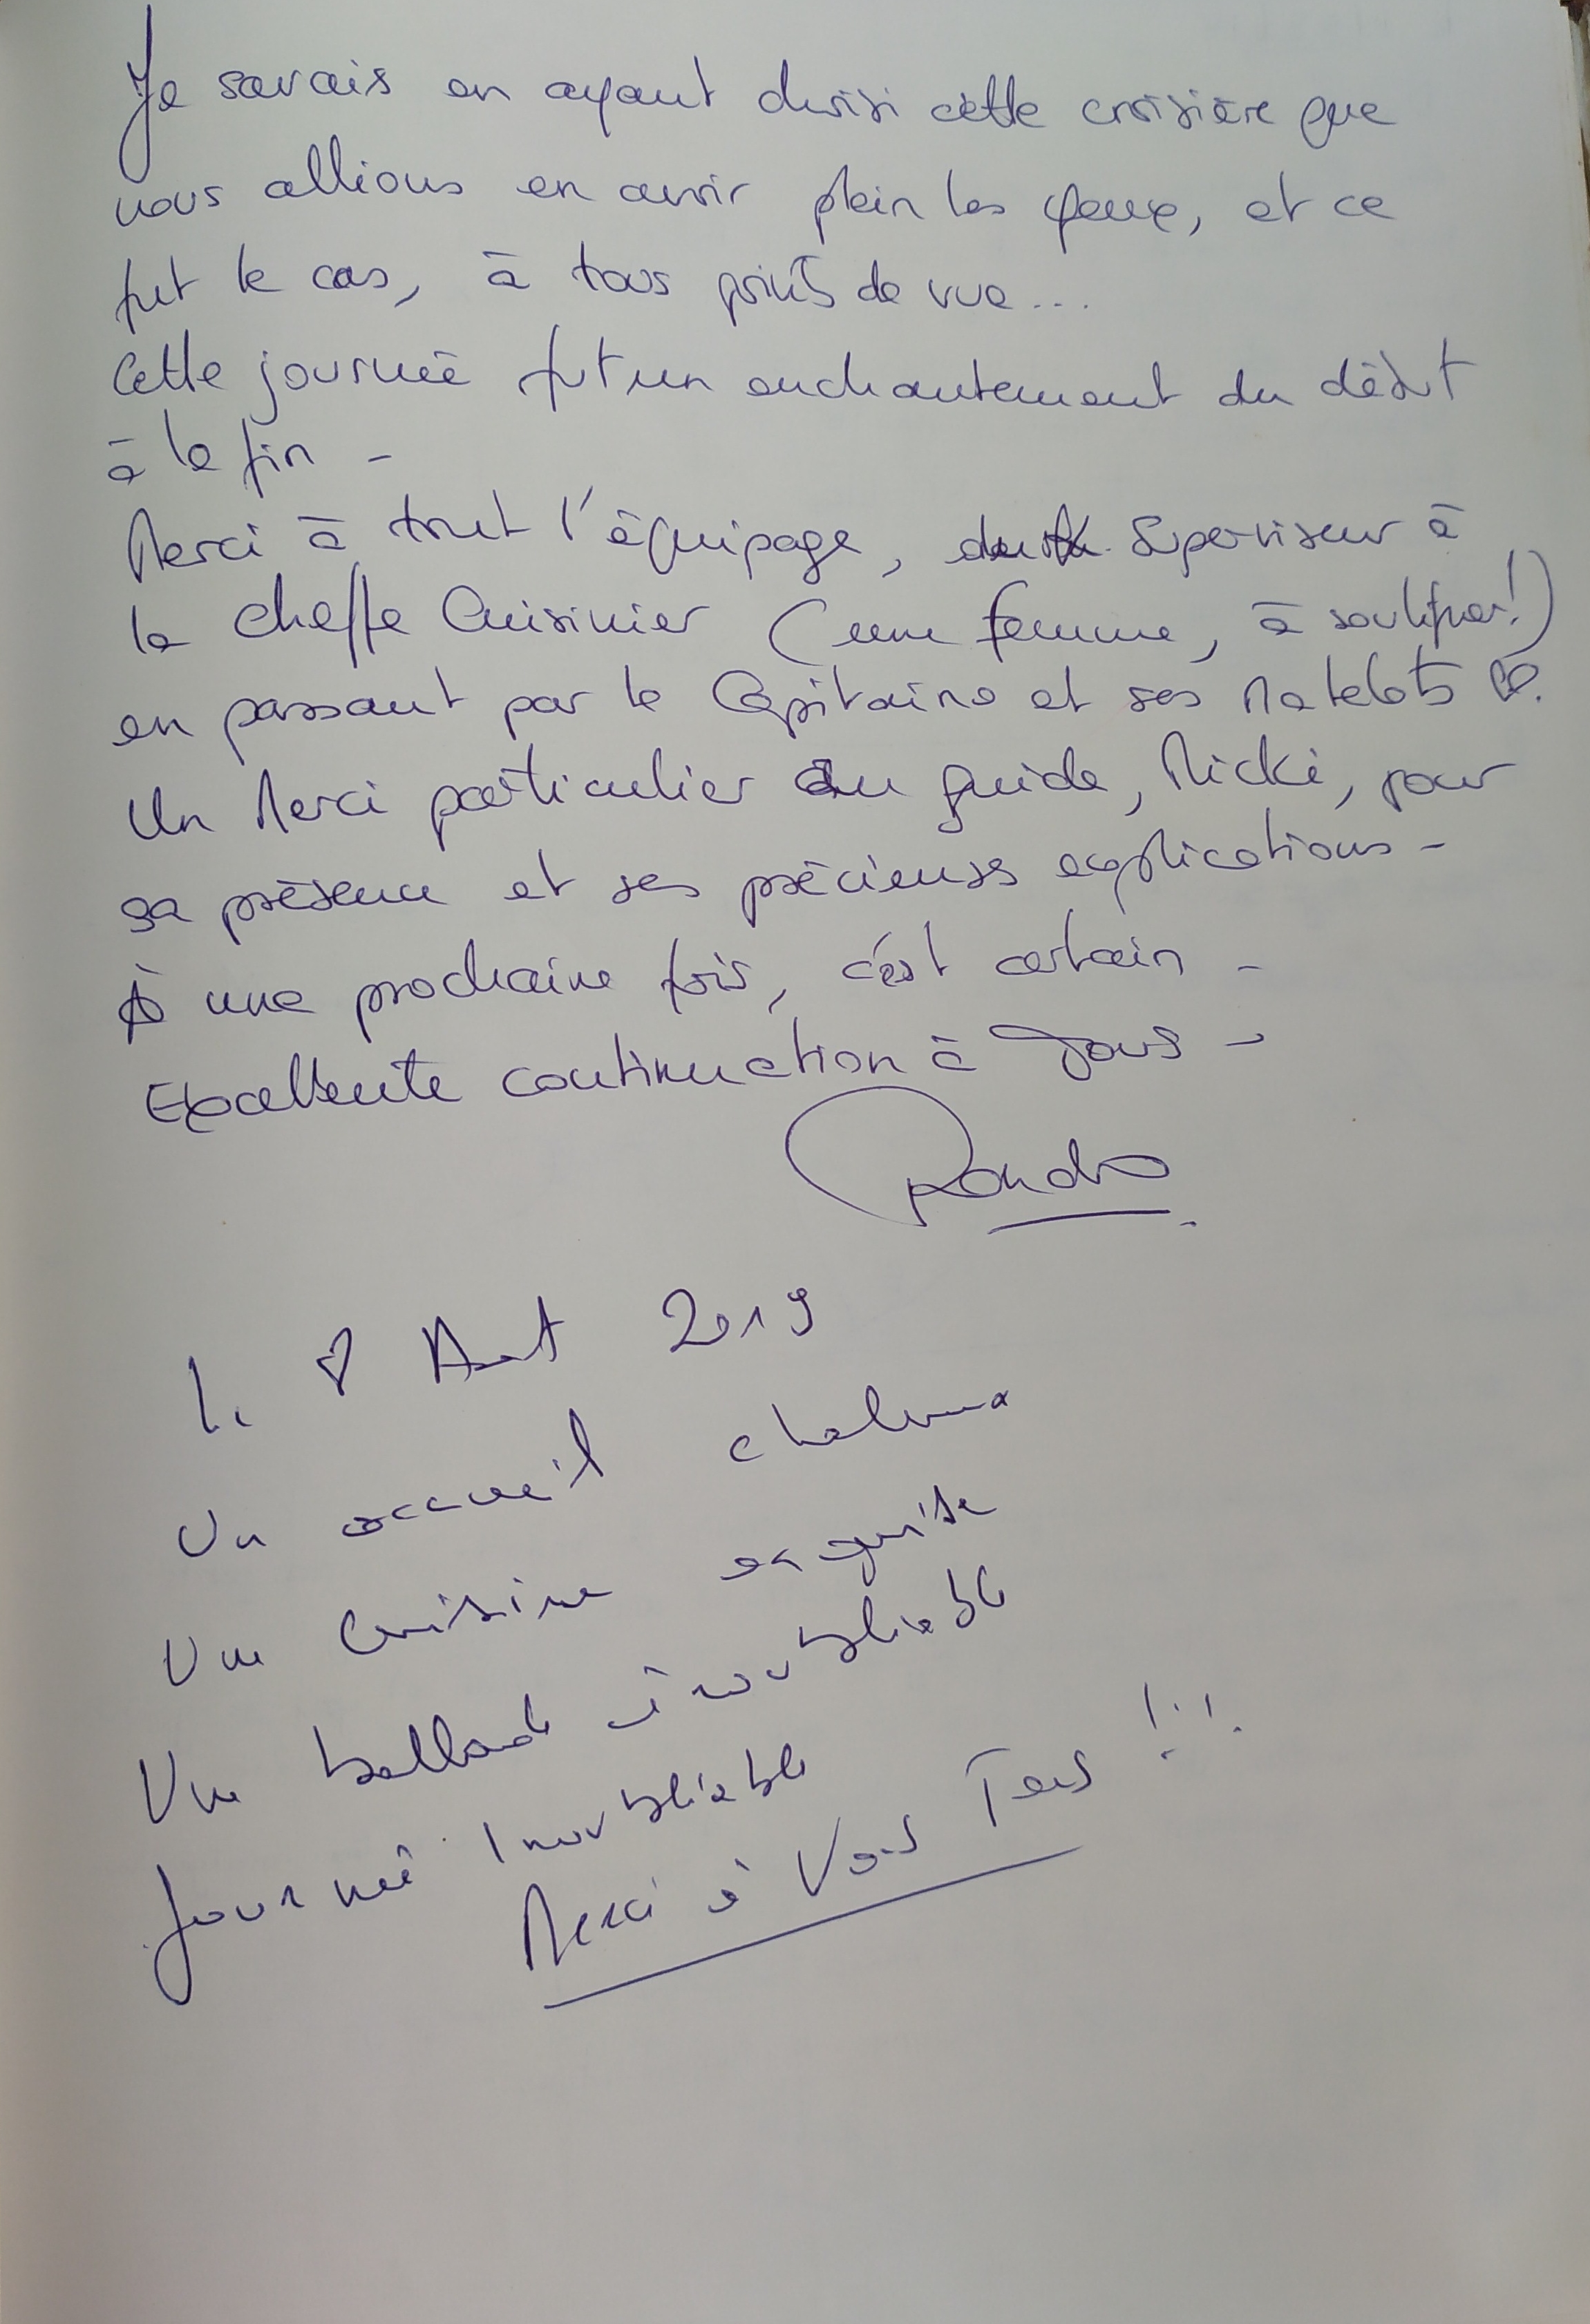 Je savais en ayant choisi cette croisière que
nous allions en avoir plein les yeux, et ce
fut le cas, à tous points de vue...
Cette journée fut un enchantement du début
à la fin -
Merci à tout l'équipage, du Superviseur à
la Cheffe Cuisinier (une femme, à souligner!)
en passant par le Capitaine et ses Matelots
Un Merci particulier au guide, Micki, pour
sa présence et ses précieuses explications -
À une prochaine fois, c'est certain -
Excellente continuation à Tous -
Le Août 2019
Un accueil chaleureux
Une cuisine exquise
Une ballade inoubliable
Journée Inoubliable
Merci à Vous Tous !!!